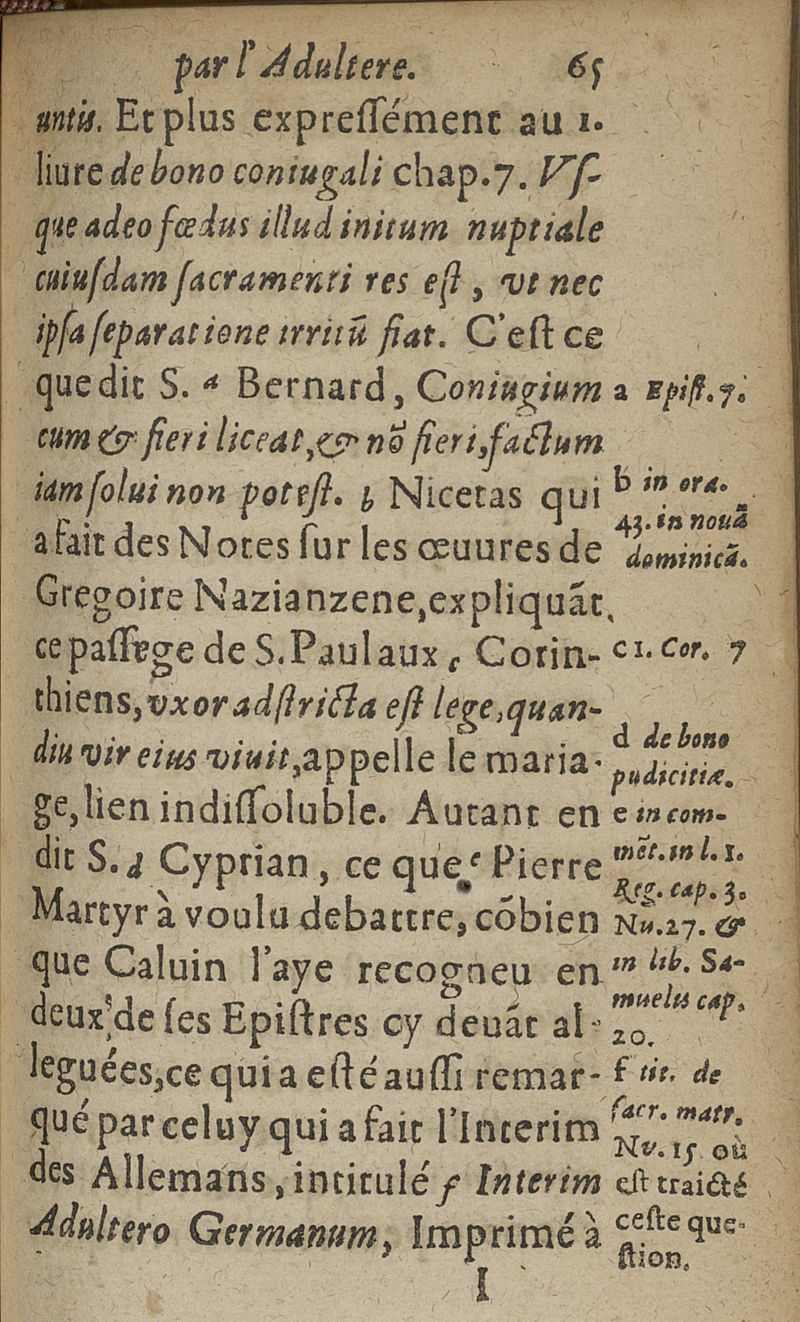 par l'Adultere. 65
untis. Et plus expreſſément au 1.
liure de bono coniugali chap.7. Vſ-
que adeo fœdus illud initum nuptiale
cuiuſdam ſacramenti res eſt, vt nec
ipſa ſeparatione irritũ fiat. C'eſt ce
que dit S. a Bernard, Coniugium
cum & fieri liceat, & nõ fieri, factum
iam ſolui non poteſt. b Nicetas qui
a fait des Notes ſur les œuures de
Gregoire Nazianzene, expliquãt
ce paſſege de S. Paul aux c Corin-
thiens, vxor adſtricta eſt lege, quan-
diu vir eius viuit, appelle le maria-
ge, lien indiſſoluble. Autant en
dit S. d Cyprian, ce que e Pierre
Martyr à voulu debattre, cõbien
que Caluin l'aye recogneu en
deux de ſes Epiſtres cy deuãt al-
leguées, ce qui a eſté auſſi remar-
qué par celuy qui a fait l'Interim
des Allemans, intitulé f Interim
Adultero Germanum, Imprimé à
I
a Epiſt. 7.
b in ora.
43. in nouã
dominicã.
c 1. Cor. 7
d de bono
pudicitiæ.
e in com-
mẽt. in l. 1.
Reg. cap. 3.
Nu. 27. &
in lib. Sa-
muelis cap.
20.
f tit. de
ſacr. matr.
Nv. 15 où
eſt traicté
ceſte que-
ſtion.